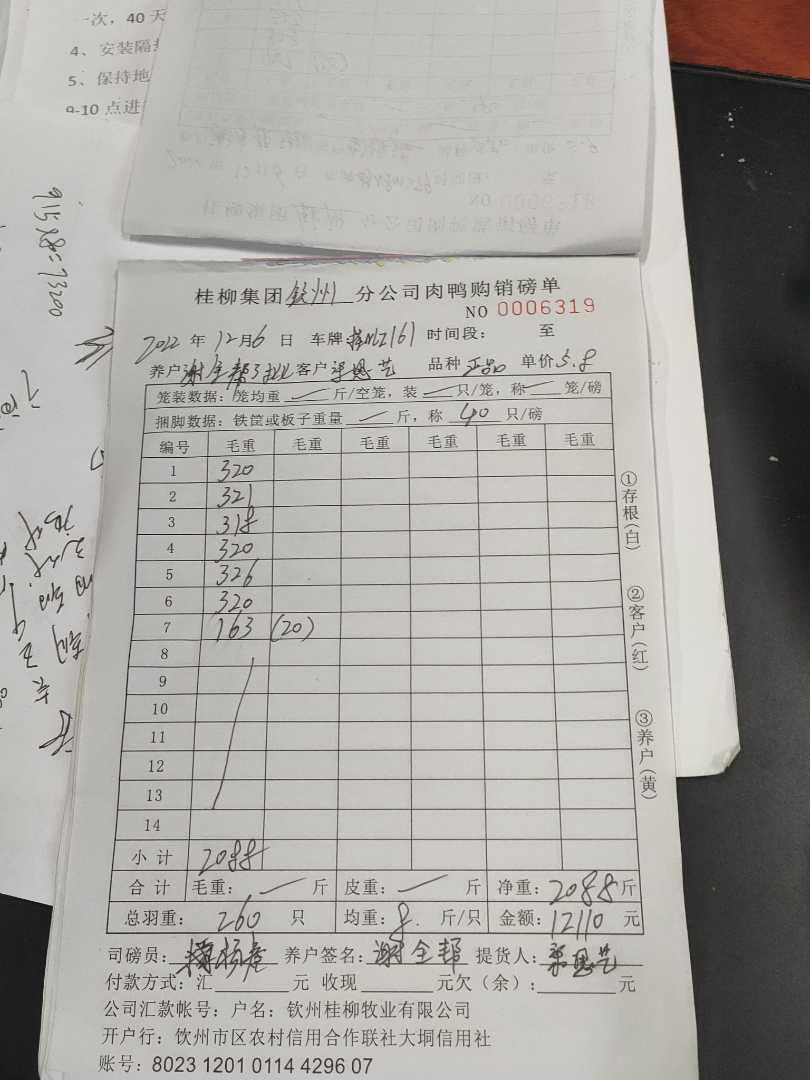 一次，40天
4、安装隔
5、保持地
9-10点进
915×8=73200
桂柳集团 钦州 分公司肉鸭购销磅单
NO 0006319
2022 年 12月 6 日 车牌 161 时间段： 至
养户 谢全帮 客户 艺 品种 正品 单价 5.8
笼装数据：笼均重 斤/空笼，装 只/笼，称 笼/磅
捆脚数据：铁筐或板子重量 斤，称 40 只/磅
编号 毛重 毛重 毛重 毛重 毛重 毛重
1 320
2 321
3 318
4 320
5 326
6 320
7 163 (20)
8
9
10
11
12
13
14
小计 2088
合计 毛重： 斤 皮重： 斤 净重：2088斤
总羽重： 260 只 均重：8. 斤/只 金额：12110 元
司磅员： 养户签名：谢全帮 提货人： 艺
付款方式：汇 元 收现 元欠（余）： 元
公司汇款帐号：户名：钦州桂柳牧业有限公司
开户行：钦州市区农村信用合作联社大垌信用社
账号：8023 1201 0114 4296 07
①存根(白)
②客户(红)
③养户(黄)